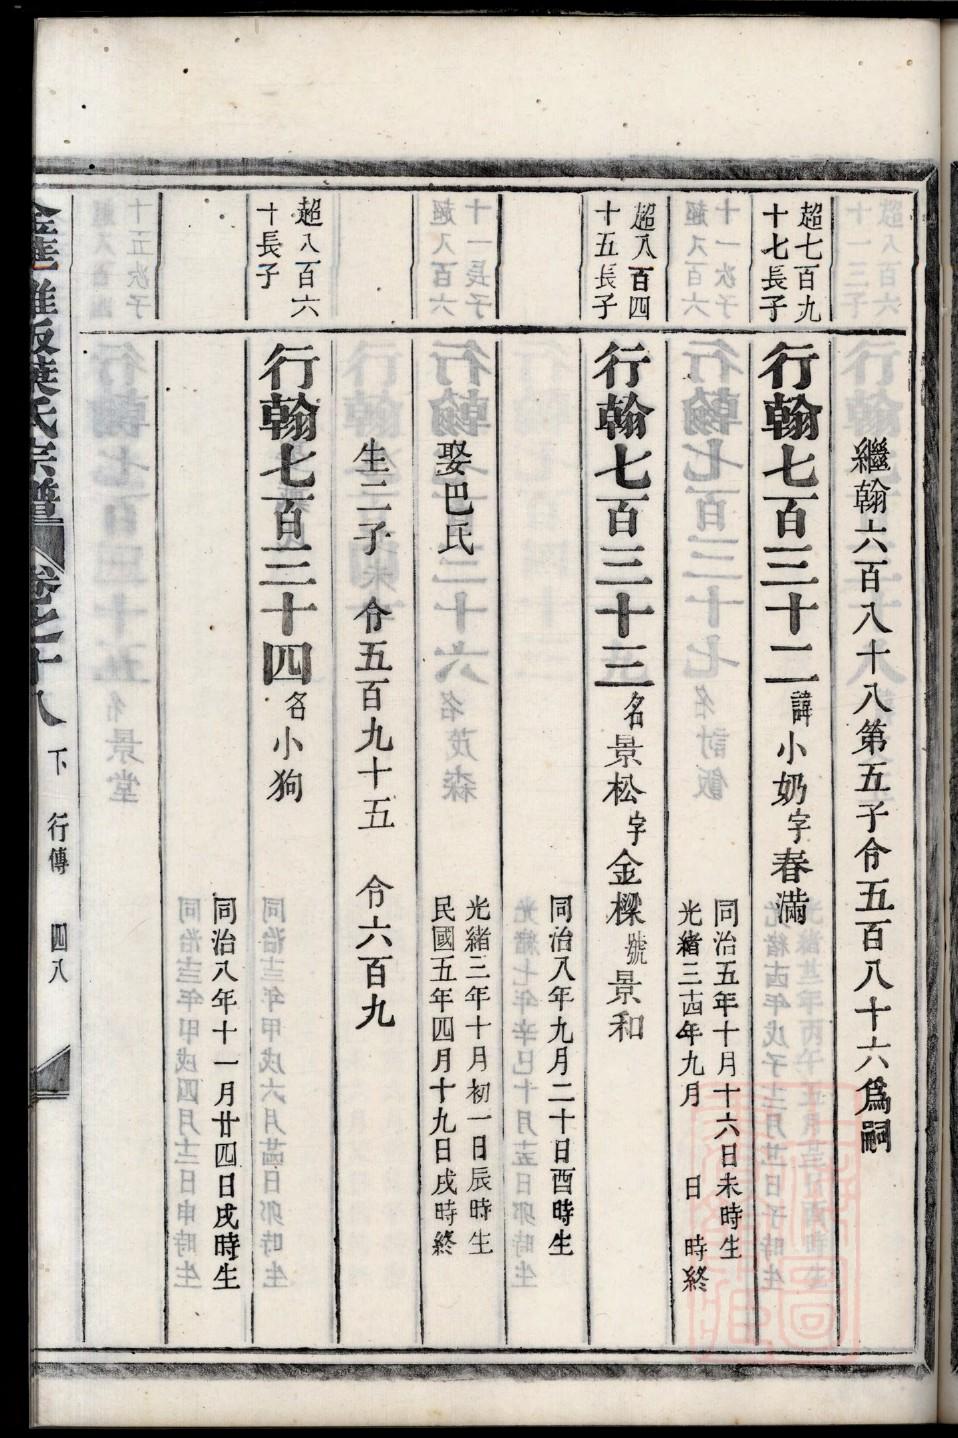 繼翰六百八十八第五子令五百八十六爲嗣
超七百九
十七長子
行翰七百三十二 諱小奶字春滿
同治五年十月十六日未時生
光緒三十四年九月 日 時終
超八百四
十五長子
行翰七百三十三 名景松字金樑號景和
同治八年九月二十日酉時生
娶巴氏
光緒三年十月初一日辰時生
民國五年四月十九日戌時終
生二子 令五百九十五 令六百九
超八百六
十長子
行翰七百三十四 名小狗
同治八年十一月廿四日戌時生
氏宗譜 卷之十八 下 行傳 四八